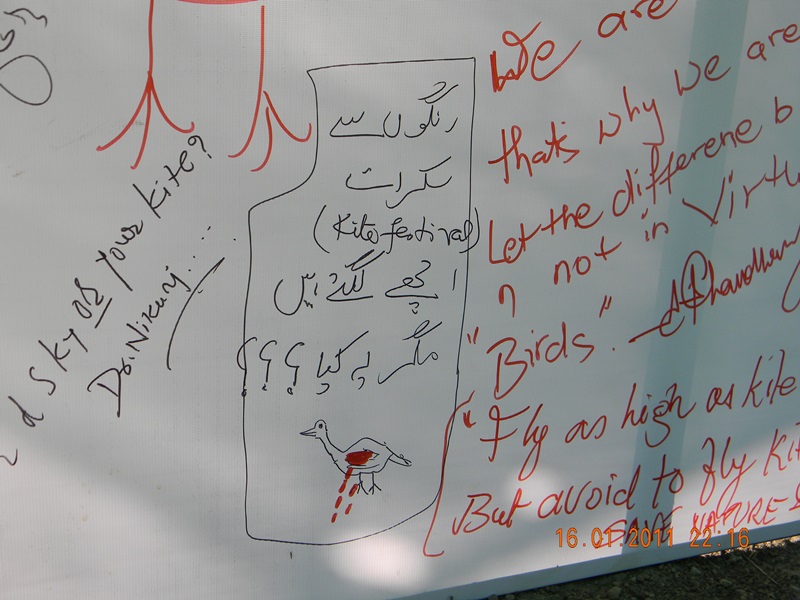 d Sky or your kite?
Dr. Nikunj....
رنگوں سے
سکرات
(Kite festival)
اچھے لگتے ہیں
مگر یہ کیا ؟؟؟؟
We are
that's why we are
Let the differene b
not in Virtu
"Birds".
"Fly as high as kite
But avoid to fly Ki
SAVE NATURE &
16.01.2011 22:16